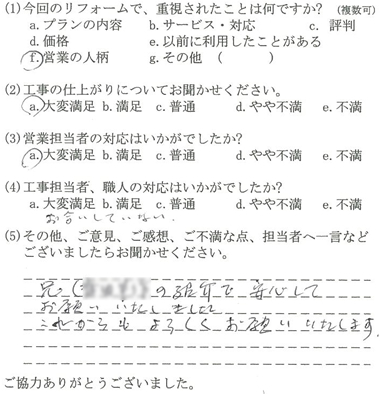 (1)今回のリフォームで、重視されたことは何ですか? (複数可)
a.プランの内容 b.サービス・対応 c. 評判
d.価格 e.以前に利用したことがある
f.営業の人柄 g.その他 ( )
(2)工事の仕上がりについてお聞かせください。
a.大変満足 b.満足 c.普通 d.やや不満 e.不満
(3)営業担当者の対応はいかがでしたか?
a.大変満足 b.満足 c.普通 d.やや不満 e.不満
(4)工事担当者、職人の対応はいかがでしたか?
a.大変満足 b.満足 c.普通 d.やや不満 e.不満
お会いしていない.
(5)その他、ご意見、ご感想、ご不満な点、担当者へ一言など
ございましたらお聞かせください。
兄( )の紹介で 安心して
お願いいたしました
これからも よろしく お願いいたします
ご協力ありがとうございました。